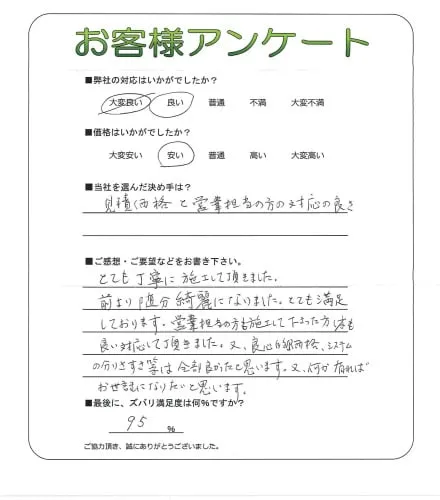 お客様アンケート
■弊社の対応はいかがでしたか?
大変良い 良い 普通 不満 大変不満
■価格はいかがでしたか?
大変安い 安い 普通 高い 大変高い
■当社を選んだ決め手は?
見積価格と営業担当の方の対応の良さ
■ご感想・ご要望などをお書き下さい。
とても丁寧に施工して頂きました。
前より随分綺麗になりました。とても満足
しております。営業担当の方も施工して下さった方々も
良い対応して頂きました。又、良心的価格、システム
の分りやすさ等は全部良かったと思います。又、何か有れば
お世話になりたいと思います。
■最後に、ズバリ満足度は何%ですか?
95 %
ご協力頂き、誠にありがとうございました。